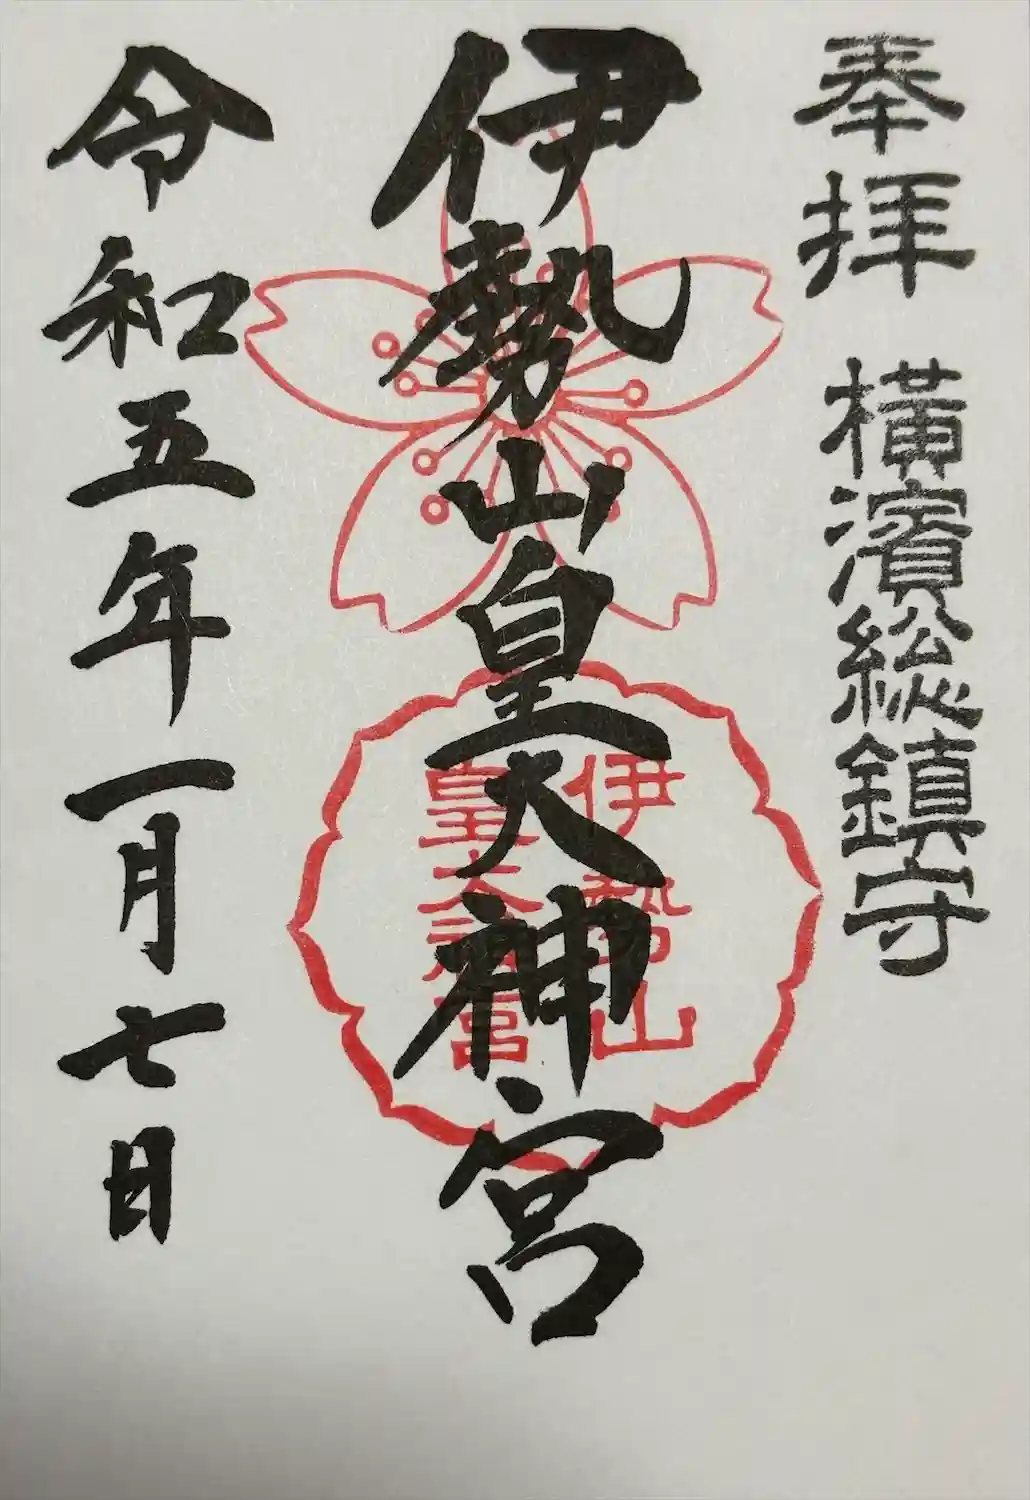 奉拝 横濱総鎮守
伊勢山皇大神宮
伊勢山
皇大神宮
令和五年一月七日